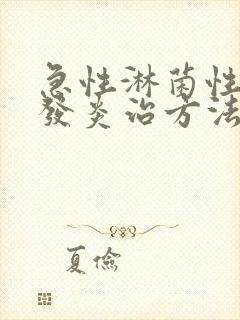 急性淋菌性
發炎治方法
夏儉